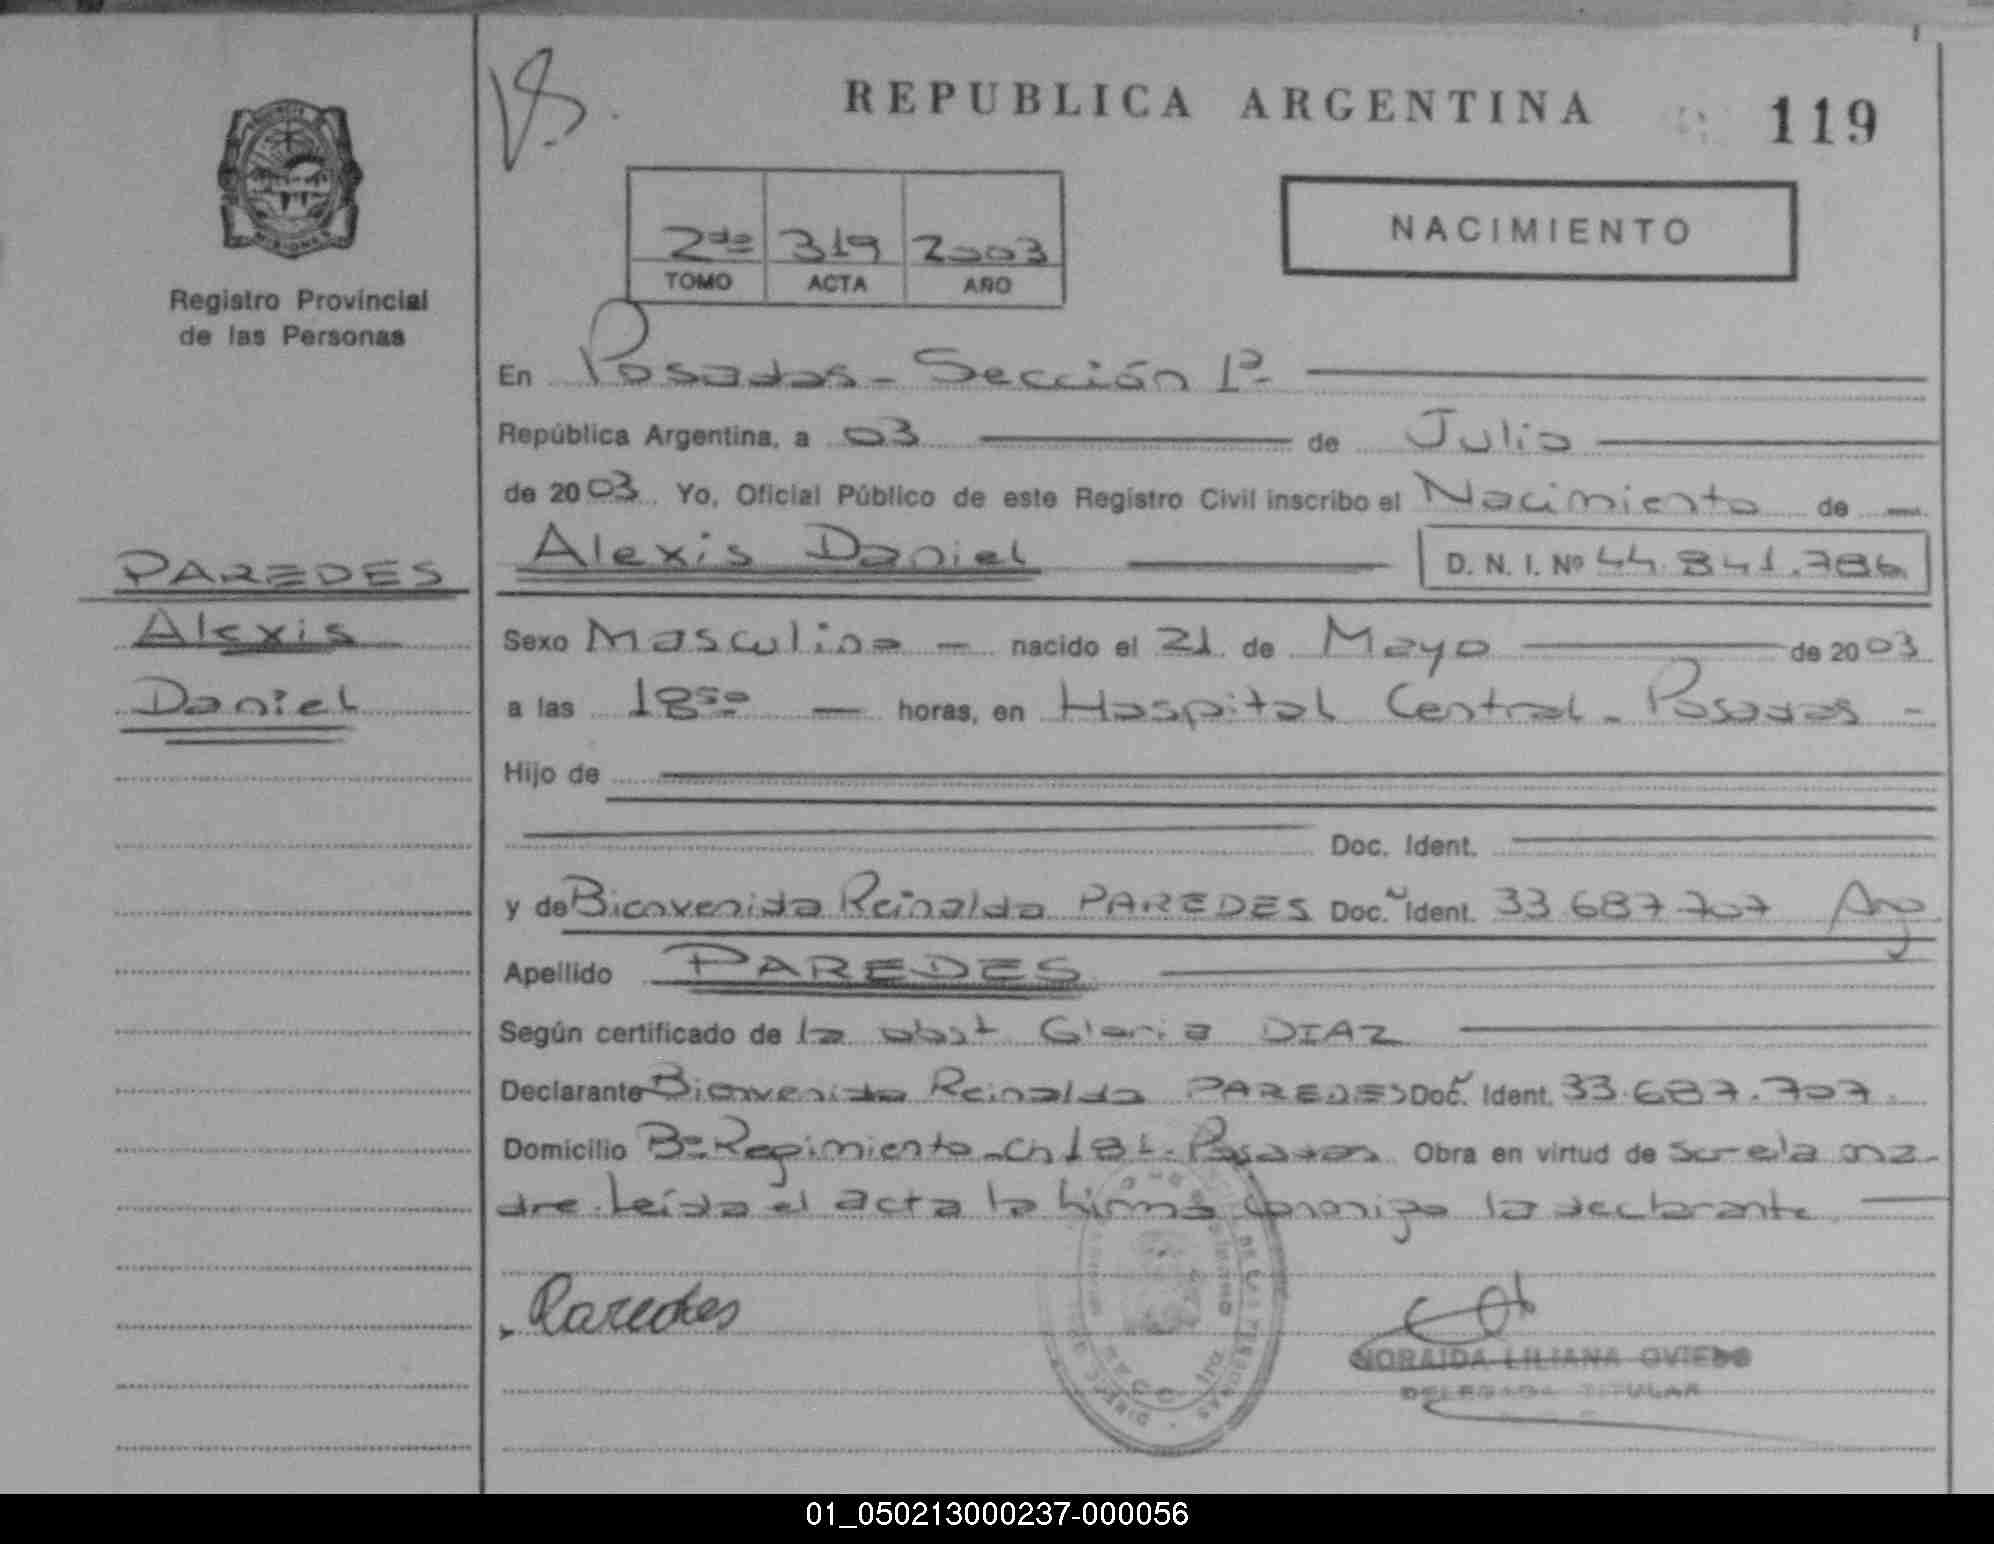 REPUBLICA ARGENTINA
119
NACIMIENTO
2do 319 2003
TOMO ACTA AÑO
Registro Provincial
de las Personas
En Posadas - Sección 1ª -
República Argentina, a 03 de Julio
de 2003 Yo, Oficial Público de este Registro Civil inscribo el Nacimiento de
Alexis Daniel D. N. I. Nº 44.841.786
PAREDES
Alexis
Daniel
Sexo Masculino nacido el 21 de Mayo de 2003
a las 18 50 horas, en Hospital Central - Posadas -
Hijo de
Doc. Ident.
y de Bienvenida Reinalda PAREDES Doc. Ident. 33.687.707 Arg
Apellido PAREDES
Según certificado de la obst Gloria DIAZ
Declarante Bienvenida Reinalda PAREDES Doc. Ident. 33.687.707.
Domicilio Bº Regimiento - Ch 181 - Posadas Obra en virtud de ser ella ma-
dre. Leída el acta la firma conmigo la declarante
Paredes
NORAIDA LILIANA OVIEDO
DELEGADA TITULAR
01_050213000237-000056